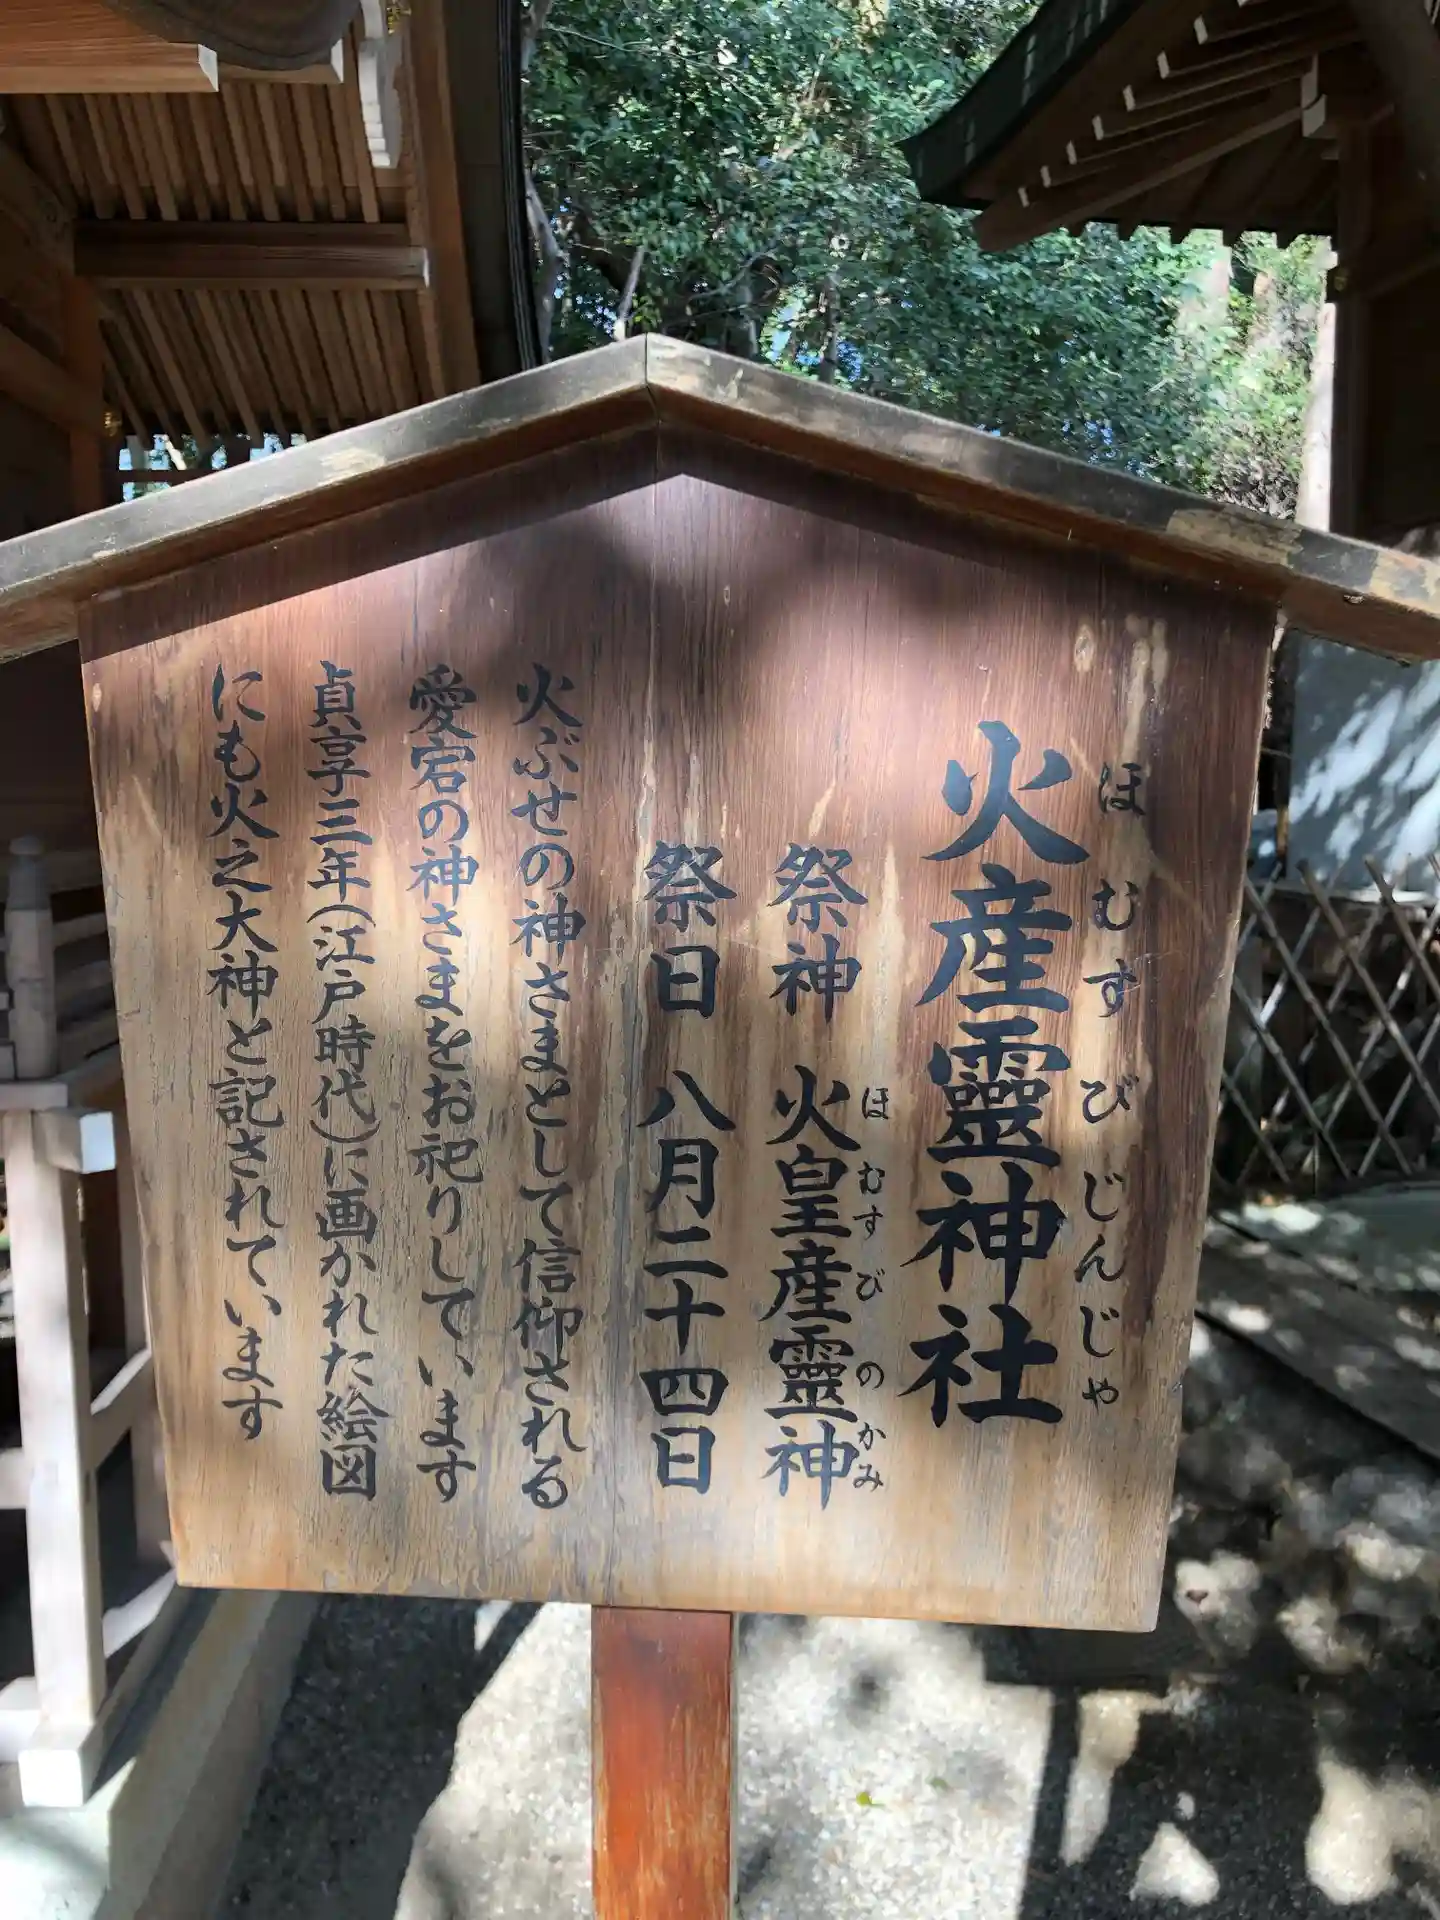 ほむすびじんじゃ
火産靈神社
ほむすびのかみ
祭神 火皇産靈神
祭日 八月二十四日
火ぶせの神さまとして信仰される
愛宕の神さまをお祀りしています
貞享三年(江戸時代)に画かれた絵図
にも火之大神と記されています